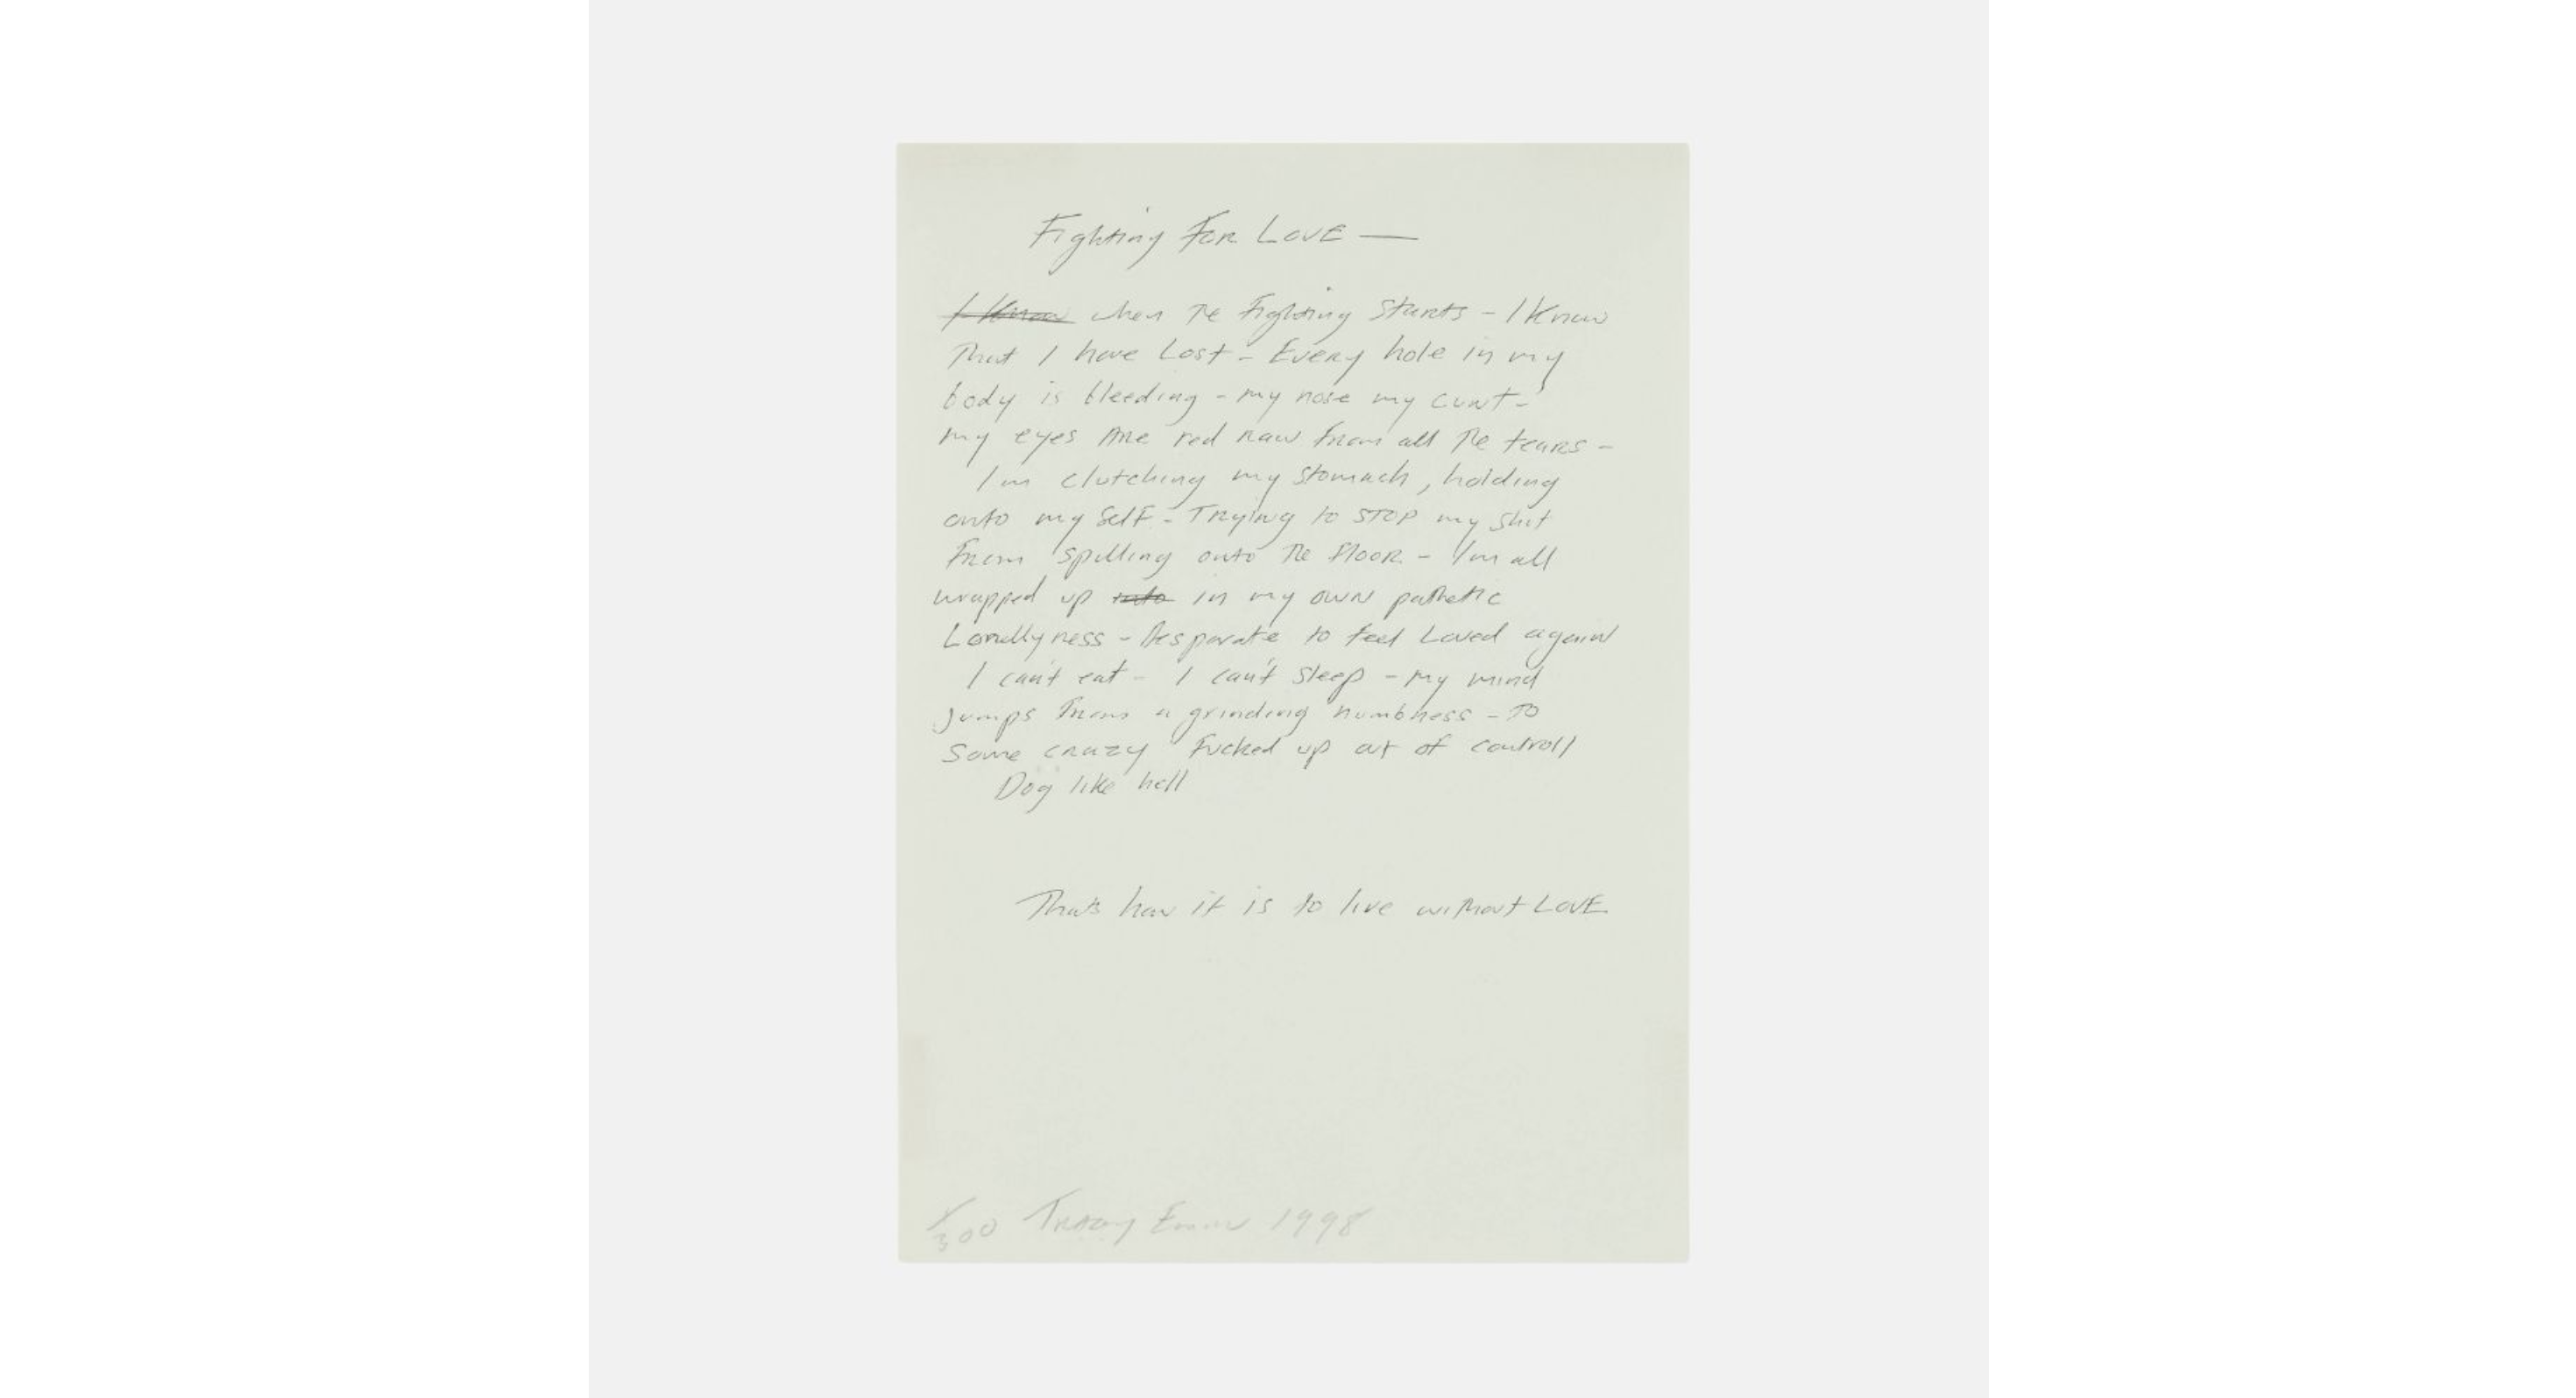 Fighting For LOVE —
I Know when The Fighting Starts - I Know
That I have Lost - Every hole in my
body is bleeding - my nose my cunt -
my eyes Are red raw from all The tears -
Im clutching my stomach, holding
onto my self - Trying to STOP my shit
From spilling onto The Floor - Im all
wrapped up into in my own pathetic
Lonellyness - Desparate to feel Loved again
I can't eat - I can't sleep - my mind
Jumps From a grinding numbness - To
Some crazy Fucked up out of controll
Dog like hell
Thats how it is to live without LOVE.
/300 Tracey Emin 1998